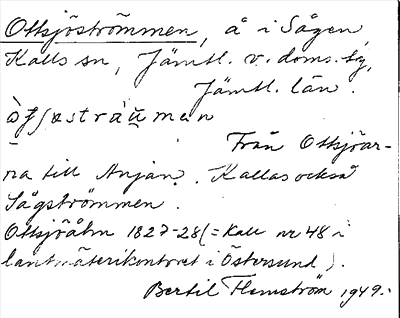 Ottsjöströmmen, å i Sågen
Kalls sn, Jämtl. v. doms.
Jämtl. län.
Från Ottsjöar-
na till Anjan. Kallas också
Sågströmmen.
Ottsjöåhn 1827-28 (= Kall nr 48 i
lantmäterikontoret i Östersund).
Bertil Flemström 1949.